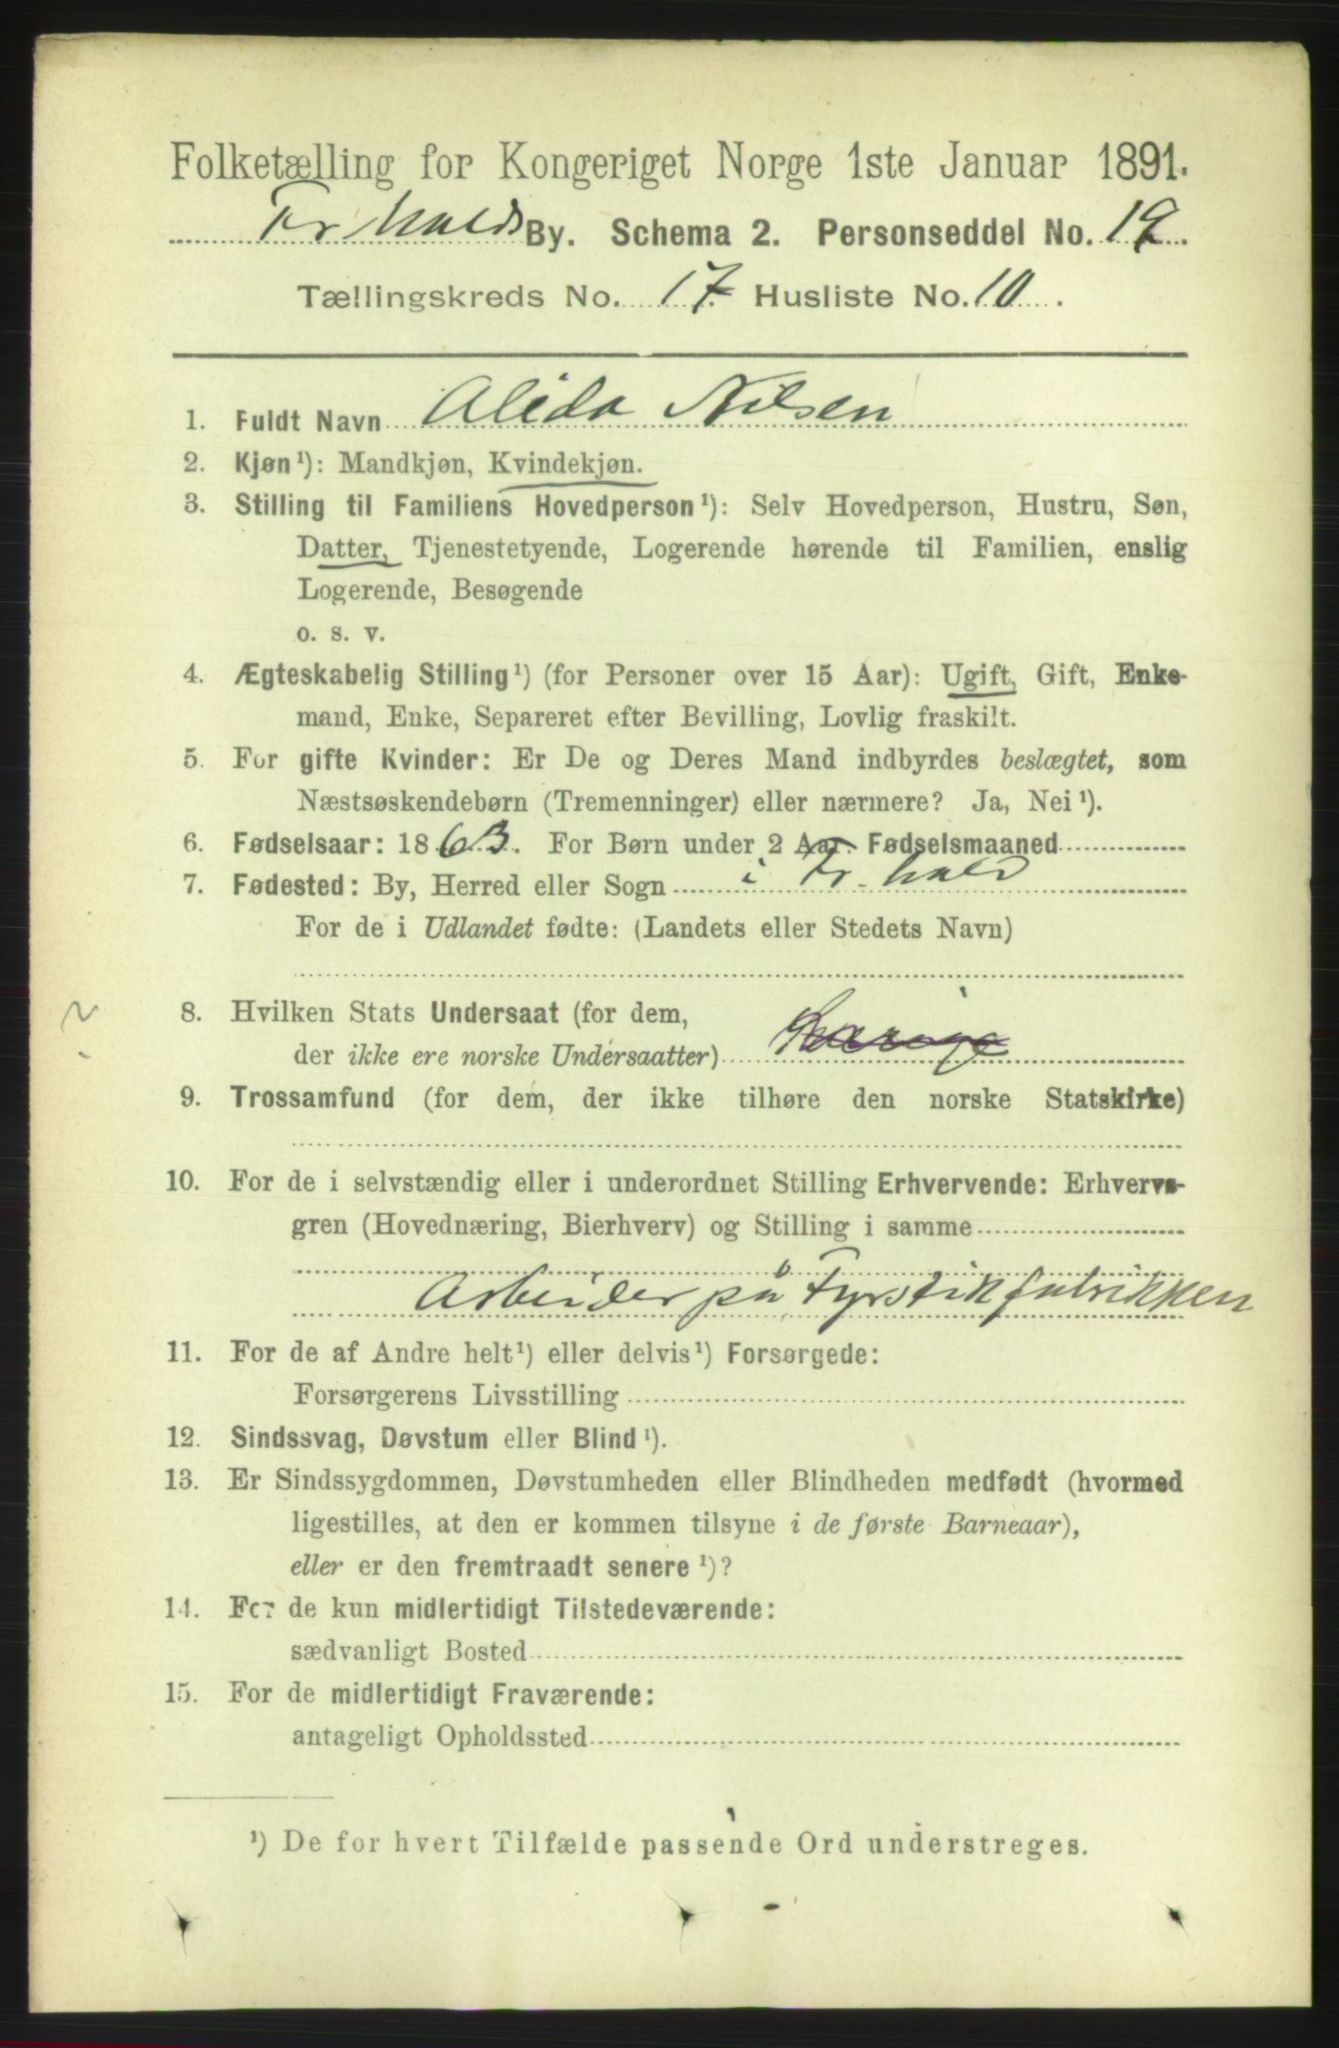 Folketælling for Kongeriget Norge 1ste Januar 1891.
Fr halds By. Schema 2. Personseddel No. 19.
Tællingskreds No. 17 Husliste No. 10.
1. Fuldt Navn Alida Nilsen
2. Kjøn¹): Mandkjøn, Kvindekjøn.
3. Stilling til Familiens Hovedperson¹): Selv Hovedperson, Hustru, Søn,
Datter, Tjenestetyende, Logerende hørende til Familien, enslig
Logerende, Besøgende
o. s. v.
4. Ægteskabelig Stilling¹) (for Personer over 15 Aar): Ugift, Gift, Enke-
mand, Enke, Separeret efter Bevilling, Lovlig fraskilt.
5. For gifte Kvinder: Er De og Deres Mand indbyrdes beslægtet, som
Næstsøskendebørn (Tremenninger) eller nærmere? Ja, Nei¹).
6. Fødselsaar: 1863. For Børn under 2 Aar. Fødselsmaaned
7. Fødested: By, Herred eller Sogn i Fr. hald
For de i Udlandet fødte: (Landets eller Stedets Navn)
8. Hvilken Stats Undersaat (for dem,
der ikke ere norske Undersaatter)
9. Trossamfund (for dem, der ikke tilhøre den norske Statskirke)
10. For de i selvstændig eller i underordnet Stilling Erhvervende: Erhvervs-
gren (Hovednæring, Bierhverv) og Stilling i samme
Arbeider på Fyrstikfabrikken
11. For de af Andre helt¹) eller delvis¹) Forsørgede:
Forsørgerens Livsstilling
12. Sindssvag, Døvstum eller Blind¹).
13. Er Sindssygdommen, Døvstumheden eller Blindheden medfødt (hvormed
ligestilles, at den er kommen tilsyne i de første Barneaar),
eller er den fremtraadt senere¹)?
14. For de kun midlertidigt Tilstedeværende:
sædvanligt Bosted
15. For de midlertidigt Fraværende:
antageligt Opholdssted
¹) De for hvert Tilfælde passende Ord understreges.